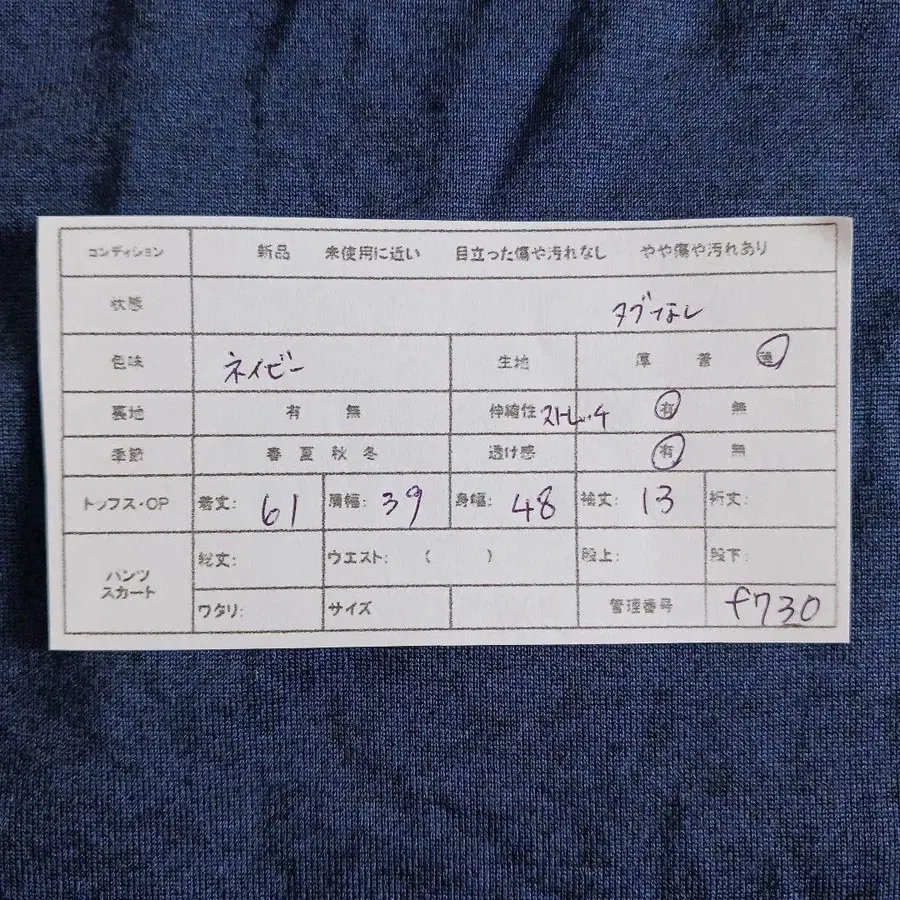 コンディション 新品 未使用に近い 目立った傷や汚れなし やや傷や汚れあり
状態 タグなし
色味 ネイビー 生地 厚 普 薄
裏地 有 無 伸縮性 ストレッチ 有 無
季節 春 夏 秋 冬 透け感 有 無
トップス・OP 着丈: 61 肩幅: 39 身幅: 48 袖丈: 13 裄丈:
パンツ スカート 総丈: ウエスト: ( ) 股上: 股下:
ワタリ: サイズ 管理番号 f730